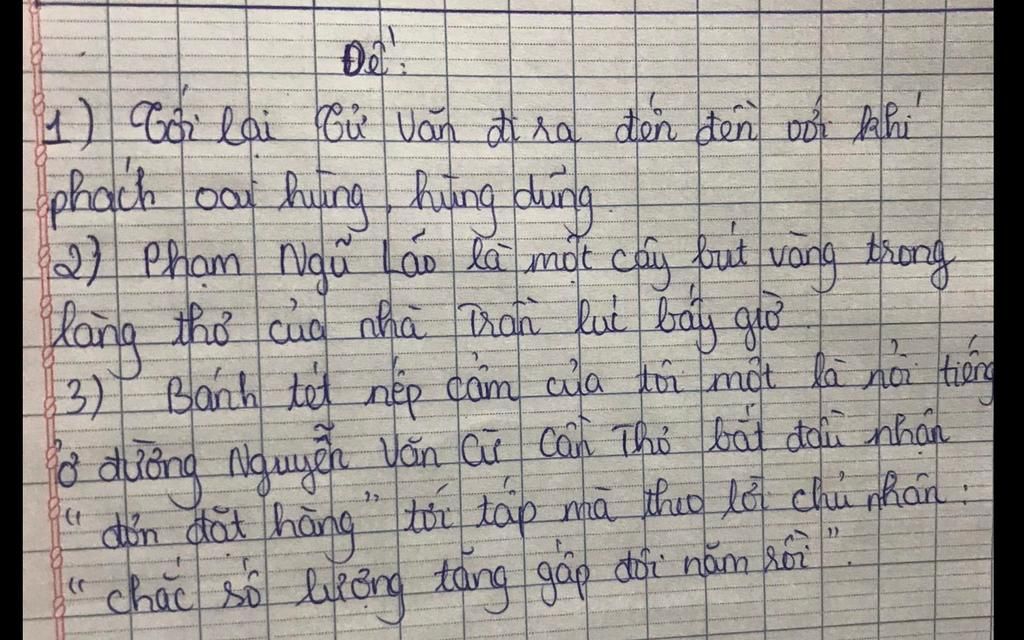 Đề:
1) Tới lại Tử Văn đi ra đến đền với khí
phách oai hùng, hùng dũng.
2) Phạm Ngũ Lão là một cây bút vàng trong
làng thơ của nhà Trần lúc bấy giờ.
3) Bánh tét nếp cẩm của tôi một là nổi tiếng
ở đường Nguyễn Văn Cừ Cần Thơ bắt đầu nhận
"đơn đặt hàng" tới tấp mà theo lời chủ nhân:
"chắc số lượng tăng gấp đôi năm rồi".